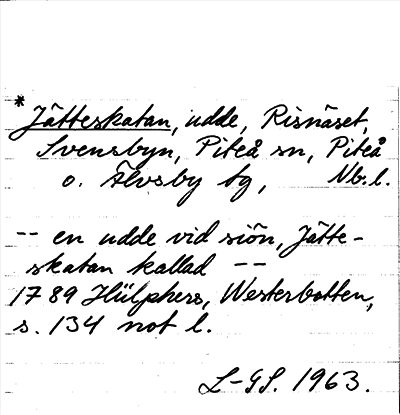 * Jätteskatan, udde, Risnäset,
Svensbyn, Piteå sn, Piteå
o. Älvsby tg, Nb. l.
-- en udde vid siön, Jätte-
skatan kallad --
1789 Hülphers, Westerbotten,
s. 134 not l.
L-GS. 1963.